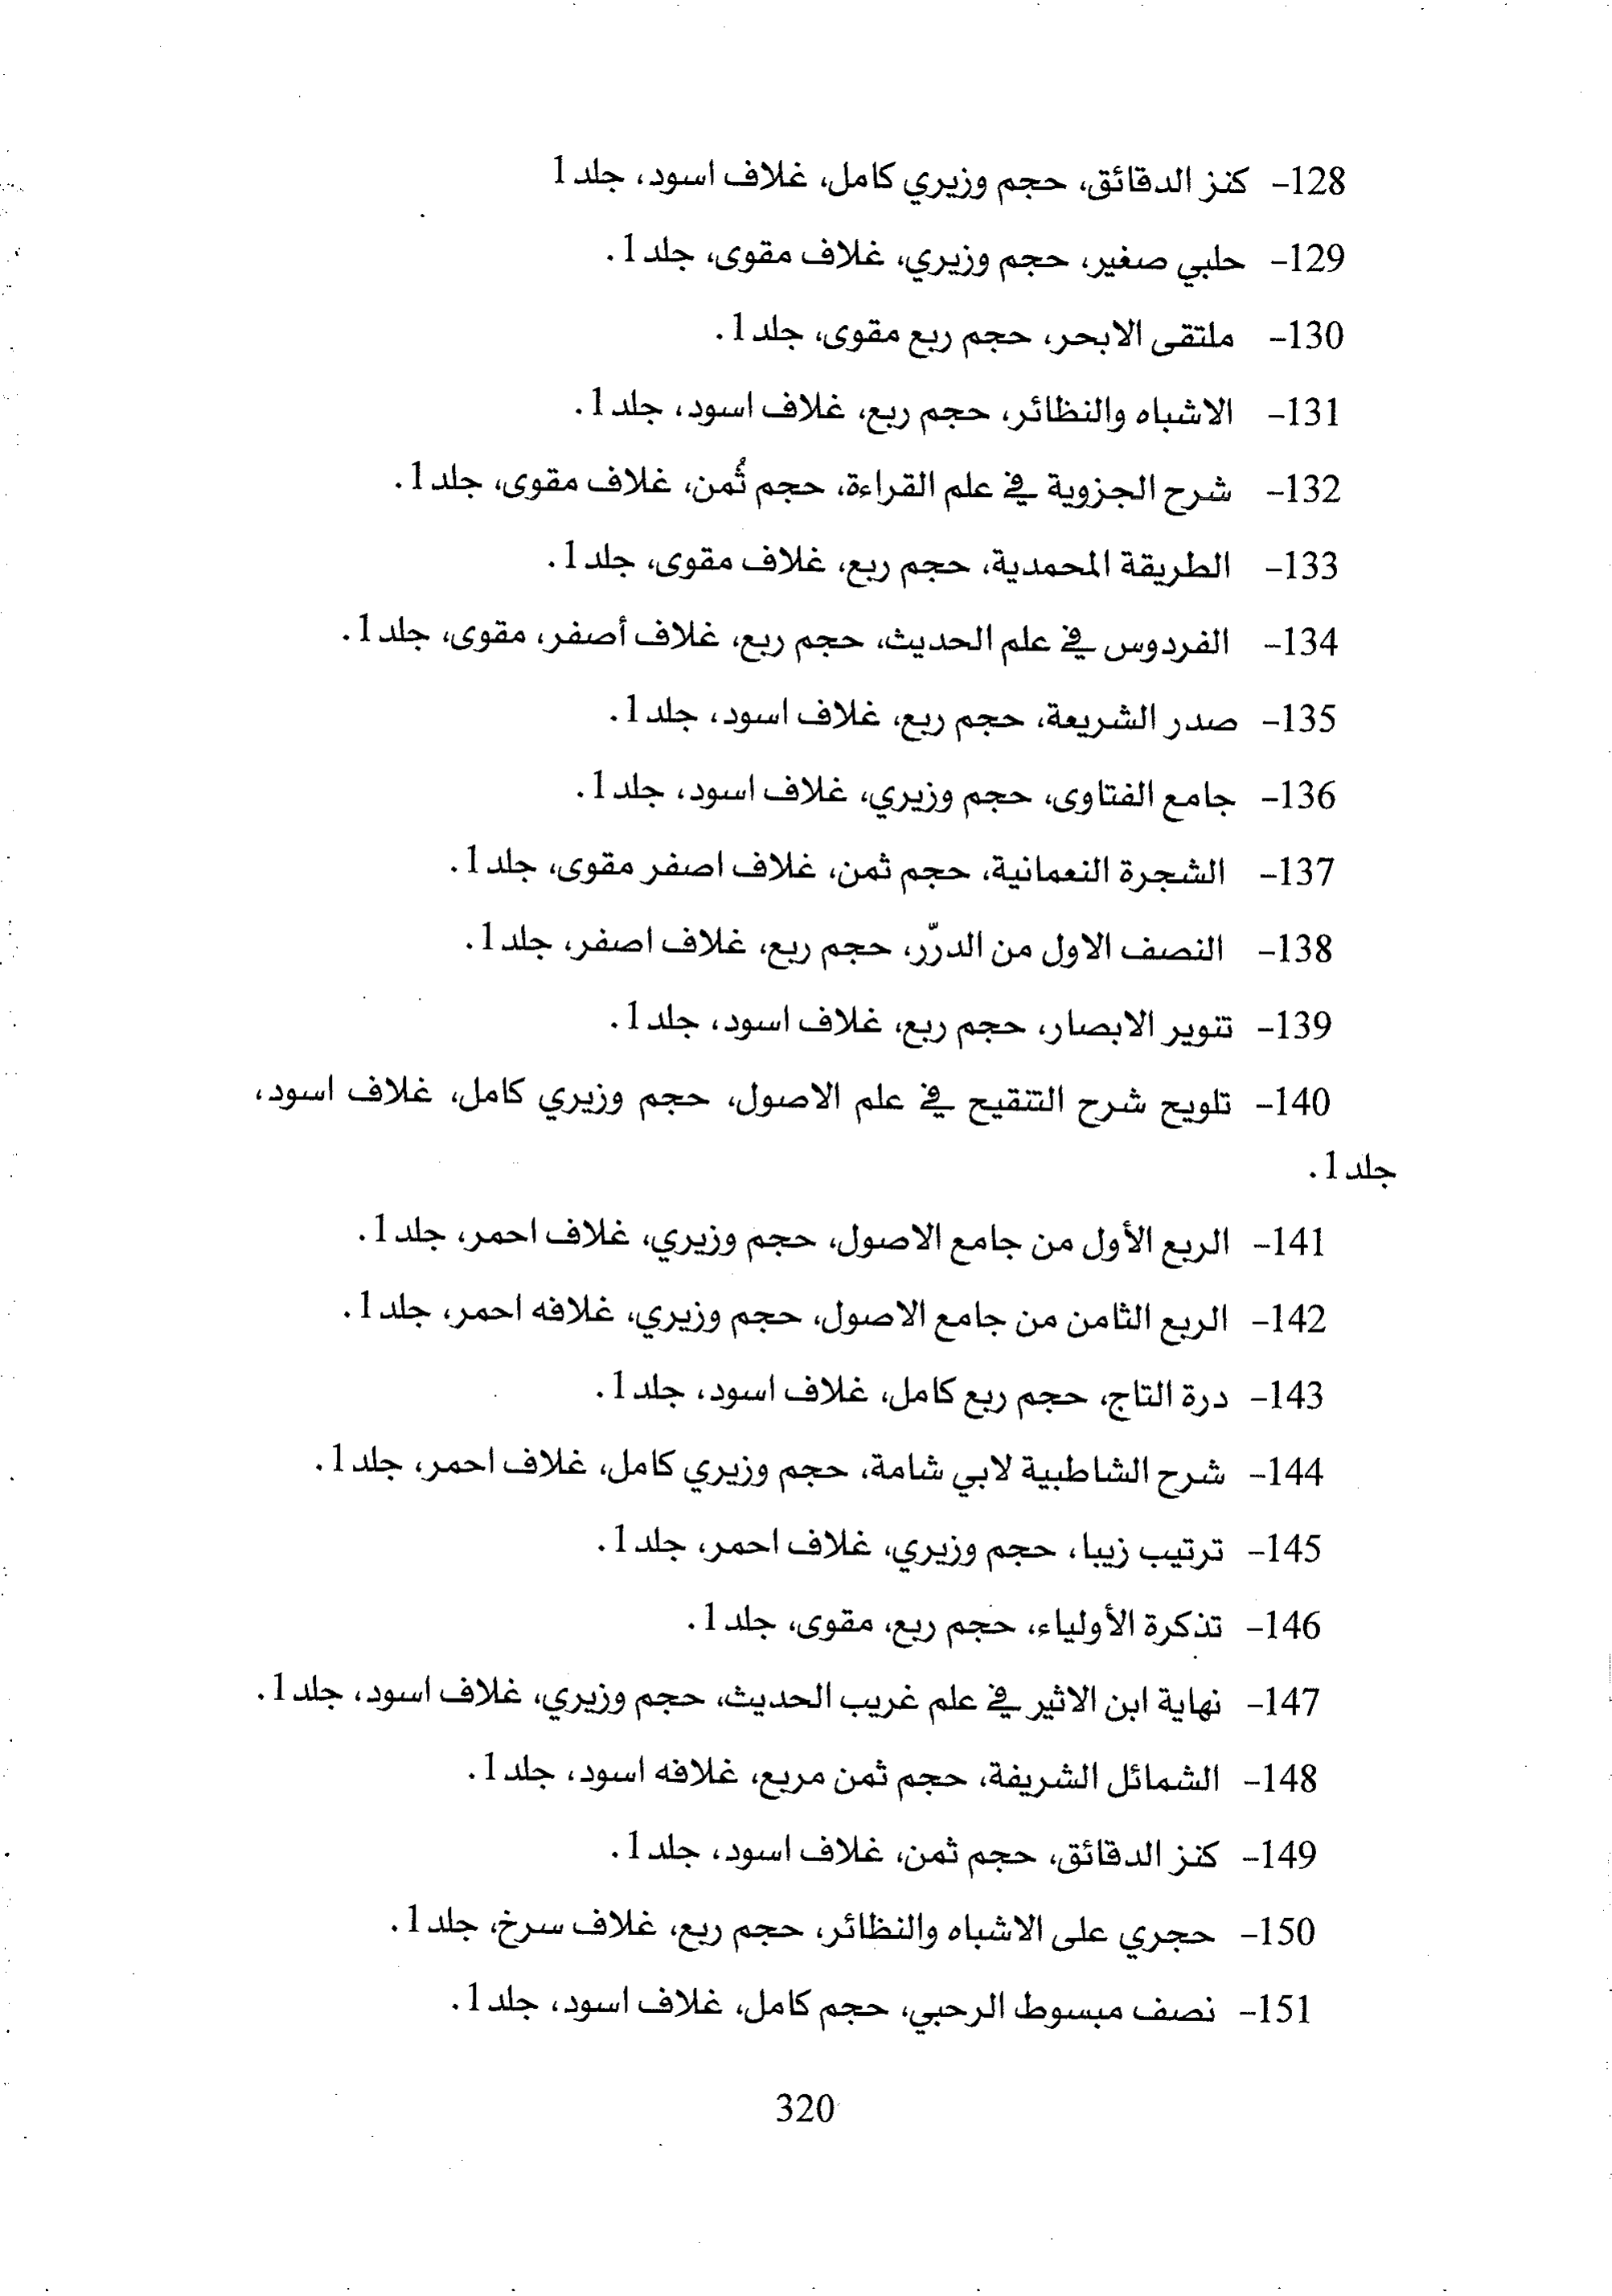 128- كنز الدقائق، حجم وزيري كامل، غلاف اسود، جلد 1
129- حلبي صغير، حجم وزيري، غلاف مقوى، جلد 1.
130- ملتقى الابحر، حجم ربع مقوى، جلد 1.
131- الاشباه والنظائر، حجم ربع، غلاف اسود، جلد 1.
132- شرح الجزوية في علم القراءة، حجم ثُمن، غلاف مقوى، جلد 1.
133- الطريقة المحمدية، حجم ربع، غلاف مقوى، جلد 1.
134- الفردوس في علم الحديث، حجم ربع، غلاف أصفر، مقوى، جلد 1.
135- صدر الشريعة، حجم ربع، غلاف اسود، جلد 1.
136- جامع الفتاوى، حجم وزيري، غلاف اسود، جلد 1.
137- الشجرة النعمانية، حجم ثمن، غلاف اصفر مقوى، جلد 1.
138- النصف الاول من الدرّر، حجم ربع، غلاف اصفر، جلد 1.
139- تنوير الابصار، حجم ربع، غلاف اسود، جلد 1.
140- تلويح شرح التنقيح في علم الاصول، حجم وزيري كامل، غلاف اسود،
جلد 1.
141- الربع الأول من جامع الاصول، حجم وزيري، غلاف احمر، جلد 1.
142- الربع الثامن من جامع الاصول، حجم وزيري، غلافه احمر، جلد 1.
143- درة التاج، حجم ربع كامل، غلاف اسود، جلد 1.
144- شرح الشاطبية لابي شامة، حجم وزيري كامل، غلاف احمر، جلد 1.
145- ترتيب زيبا، حجم وزيري، غلاف احمر، جلد 1.
146- تذكرة الأولياء، حجم ربع، مقوى، جلد 1.
147- نهاية ابن الاثير في علم غريب الحديث، حجم وزيري، غلاف اسود، جلد 1.
148- الشمائل الشريفة، حجم ثمن مربع، غلافه اسود، جلد 1.
149- كنز الدقائق، حجم ثمن، غلاف اسود، جلد 1.
150- حجري على الاشباه والنظائر، حجم ربع، غلاف سرخ، جلد 1.
151- نصف مبسوط الرحبي، حجم كامل، غلاف اسود، جلد 1.
320